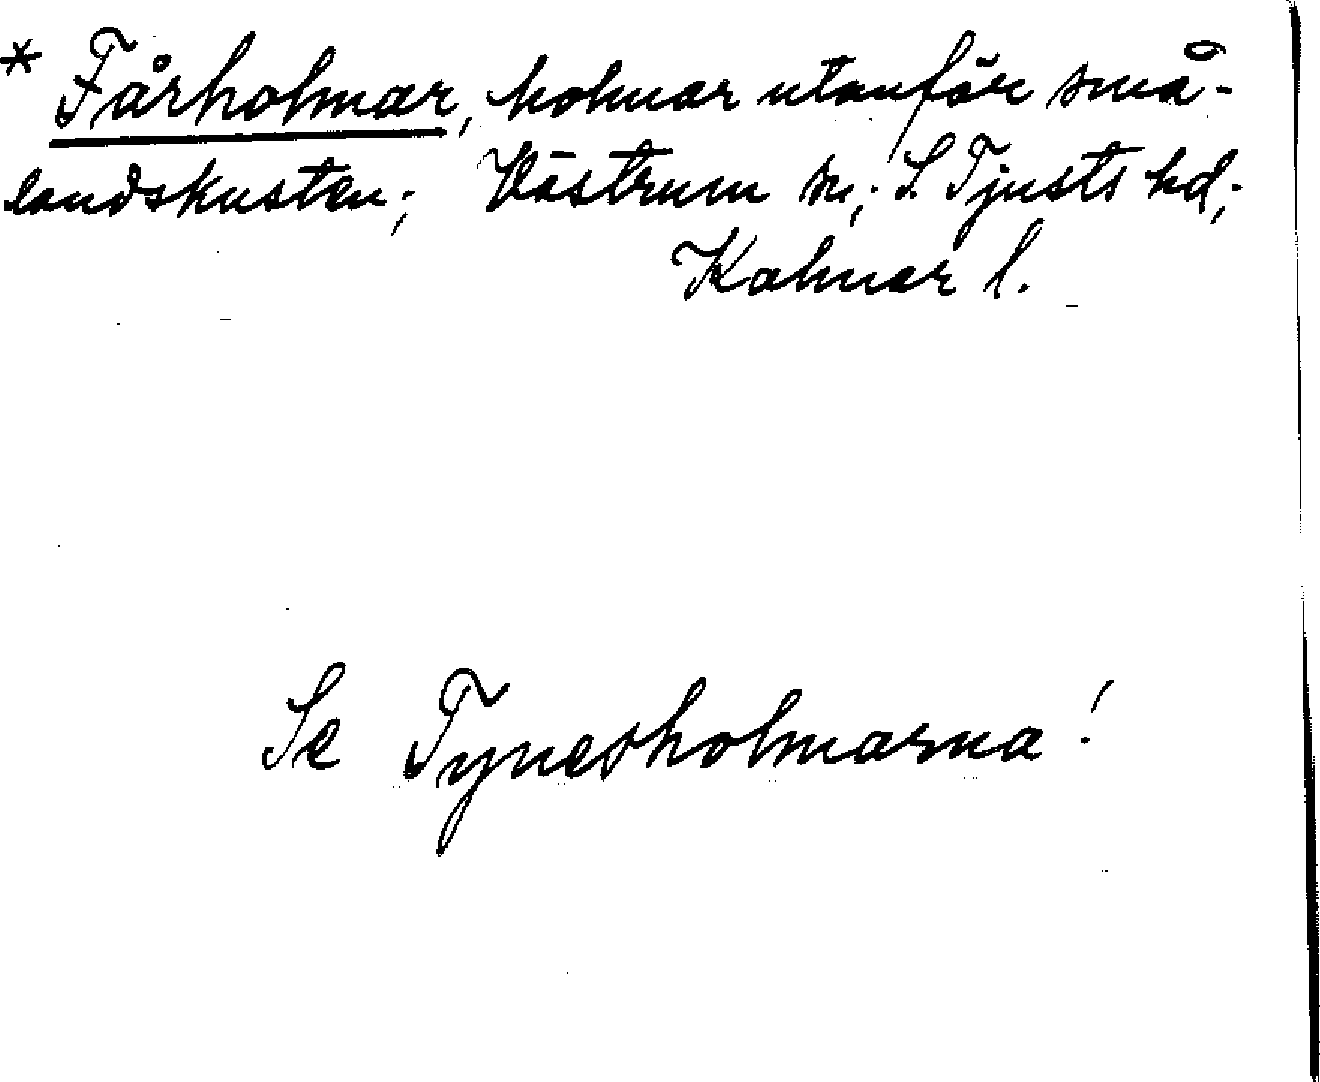 * Fårholmar, holmar utanför små-
landskusten; Västrum sn; S Tjusts hd;
Kalmar l.
Se Tynesholmarna!